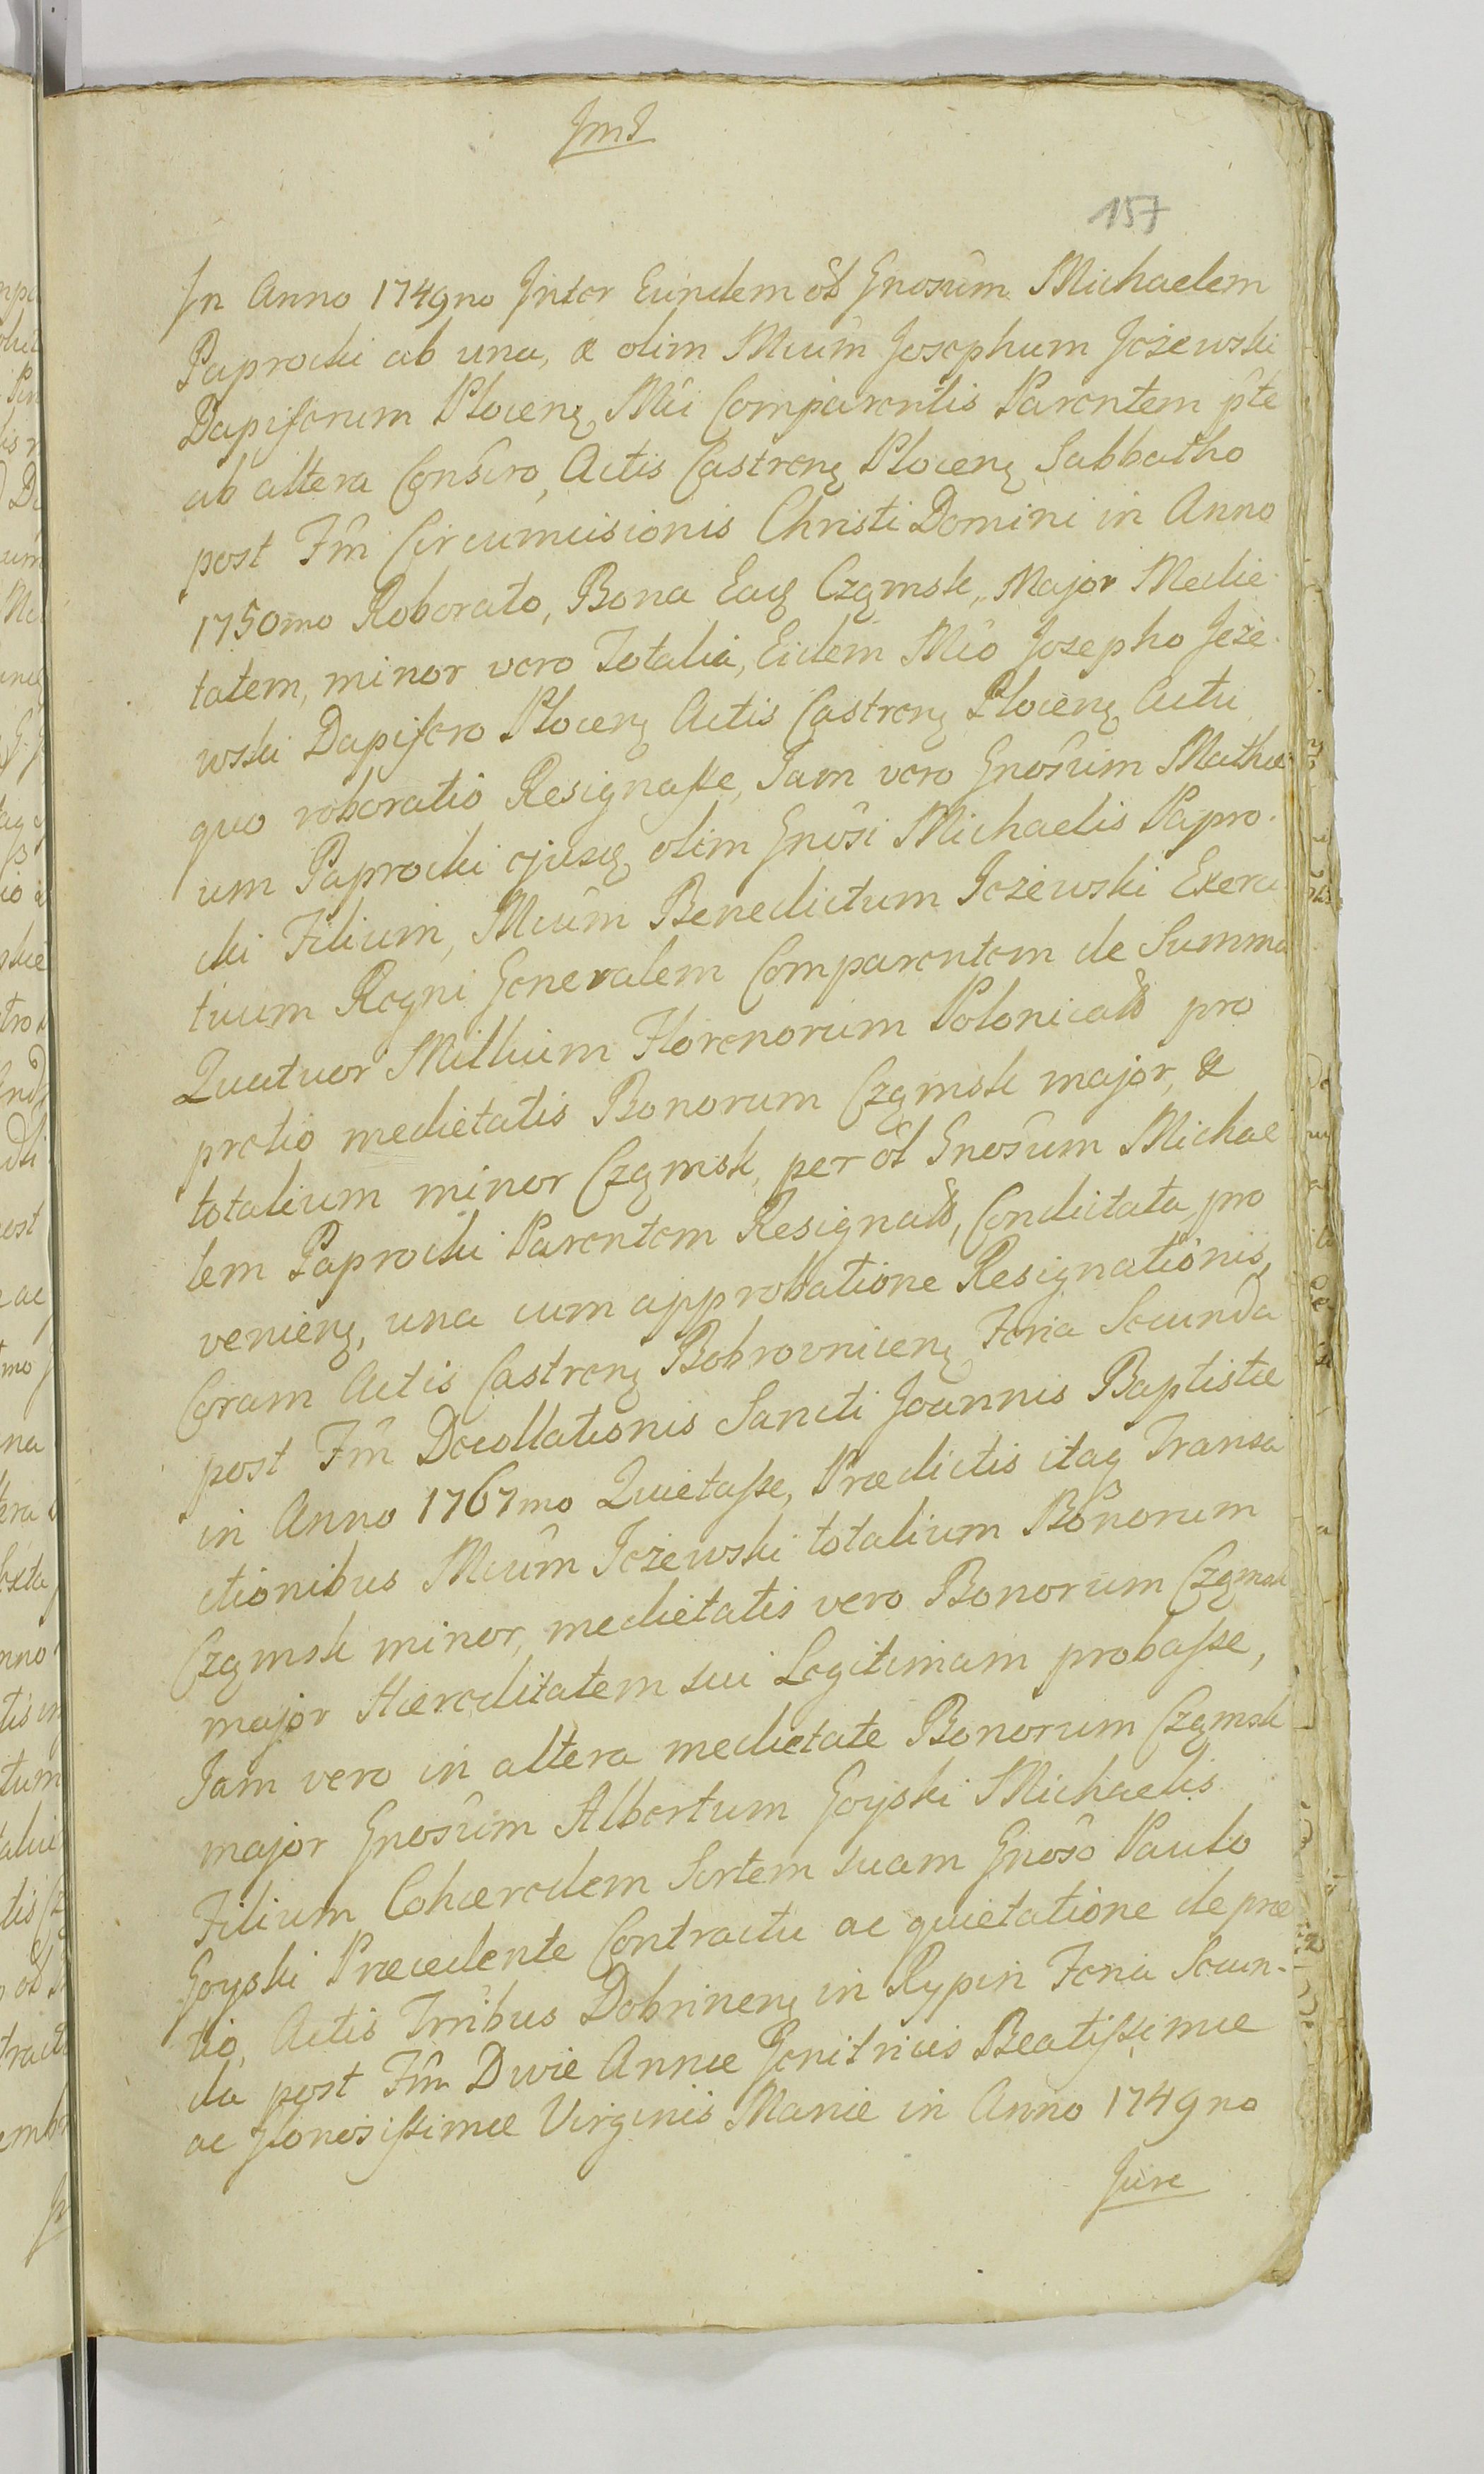 JmJ
157
In Anno 1749no Inter Eundem ol Gnosûm Michaelem
Paprocki ab una, & olim Mcûm Josephum Jeżewski
Dapiferum Plocenę Mci Comparentis Parentem pte
ab altera Conscro, Actis Castrenę Plocenę Sabbatho
post Fm̂ Circumcisionis Christi Domini in Anno
1750mo Roborato, Bona Eaq Czamsk, Major Medie
tatem, minor vero Totalia, Eidem Mco Josepho Jeże
wski Dapifero Plocenę Actis Castrenę Plocenę Actu
quo roboratio Resignasse, Jam vero Gnosûm Mathæ
um Paprocki ejusq olim Gnosi Michaelis Papro
cki Filium, Mcûm Benedictum Jeżewski Exerci
tuum Regni Generalem Comparentem de Summa
Quatuor Millium Florenorum Polonicalb pro
pretio medietatis Bonorum Czamsk major, &
totalium minor Czamsk, per ol Gnosûm Michae
lem Paprocki Parentem Resignalb, Condictata, pro
venienę, una cum approbatione Resignationis,
Coram Actis Castrenę Bobrovnicenę Feria Secunda
post Fm̂ Decollationis Sancti Joannis Baptistæ
in Anno 1767mo Quietasse, Prædictis itaq Transa
ctionibus Mcûm Jeżewski totalium Bonorum
Czamsk minor, medietatis vero Bonorum Czamsk
major Hæreditatem sui Legitimam probasse,
Jam vero in altera medietate Bonorum Czamsk
major Gnosûm Albertum Goyski Michaelis
Filium Cohæredem Sortem suam Gnoso Paulo
Goyski Præcedente Contractu ac quietatione de præ
tio, Actis Tr̂ribus Dobrinenę in Rypin Feria Secun-
da post Fm̂ Divæ Annæ Genitricis Beatissimæ
ac Gloriosissimæ Virginis Mariæ in Anno 1749no
Jure